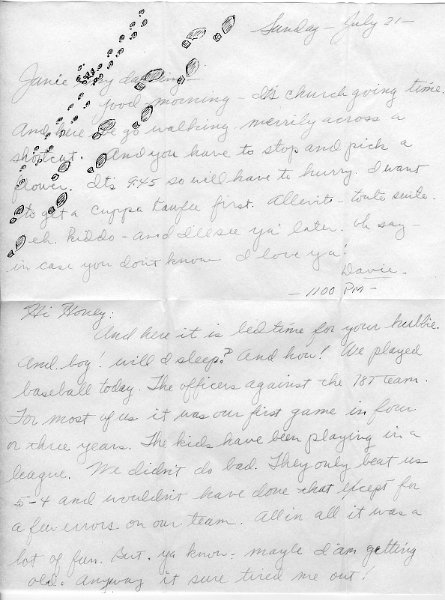 Sunday - July 21 -
Janie my darling -
Good morning - It's church going time.
And here we go walking merrily across a
shortcut. And you have to stop and pick a
flower. It's 9:45 so will have to hurry. I want
to get a cuppa kaufee first. Allerite - toute suite.
eh. Kiddo - and I'll see ya' later. Oh say -
in case you don't know I love ya!
Davie.
- 1100 PM -
Hi Honey:
And here it is bed time for your hubbie.
And boy! will I sleep? And how! We played
baseball today. The officers against the 1st team.
For most of us it was our first game in four
or three years. The kids have been playing in a
league. We didn't do bad. They only beat us
5-4 and wouldn't have done that except for
a few errors on our team. All in all it was a
lot of fun. But. ya know - maybe I'am getting
old. Anyway it sure tired me out!